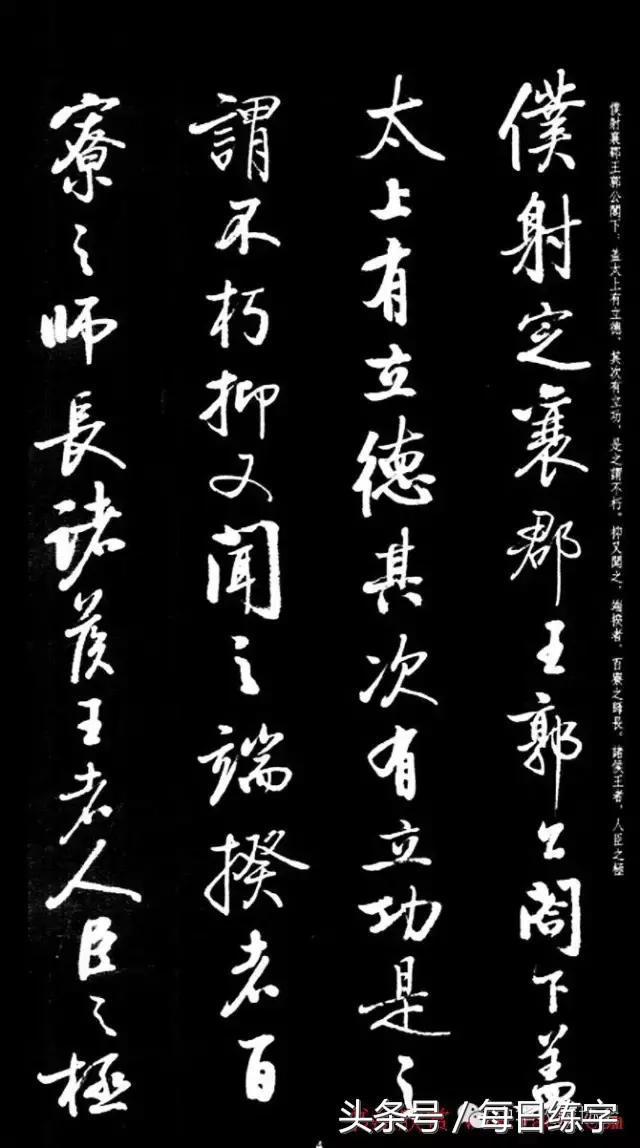 僕射定襄郡王郭公閣下蓋
太上有立德其次有立功是之
謂不朽抑又聞之端揆者百
寮之師長諸侯王者人臣之極
僕射襄郡王郭公閣下：蓋太上有立德、其次有立功，是之謂不朽。抑又聞之，端揆者，百寮之師長。諸侯王者，人臣之極
头条号／每日练字